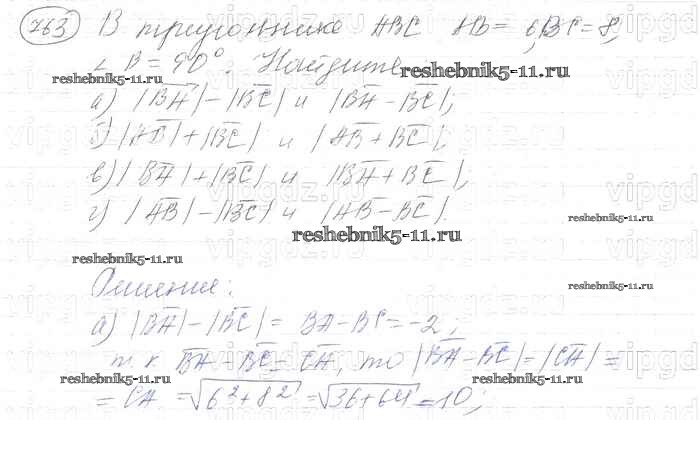 763 В треугольнике ABC AB = 6, BC = 8,
∠ B = 90°. Найдите
reshebnik5-11.ru
reshebnik5-11.ru
а) |BA| - |BC| и |BA - BC|;
б) |AB| + |BC| и |AB + BC|;
в) |BA| + |BC| и |BA + BC|;
г) |AB| - |BC| и |AB - BC|.
reshebnik5-11.ru
reshebnik5-11.ru
reshebnik5-11.ru
Решение:
reshebnik5-11.ru
а) |BA| - |BC| = BA - BC = -2;
т. к. BA - BC = CA, то |BA - BC| = |CA| =
reshebnik5-11.ru
reshebnik5-11.ru
= CA = √6² + 8² = √36 + 64 = 10;